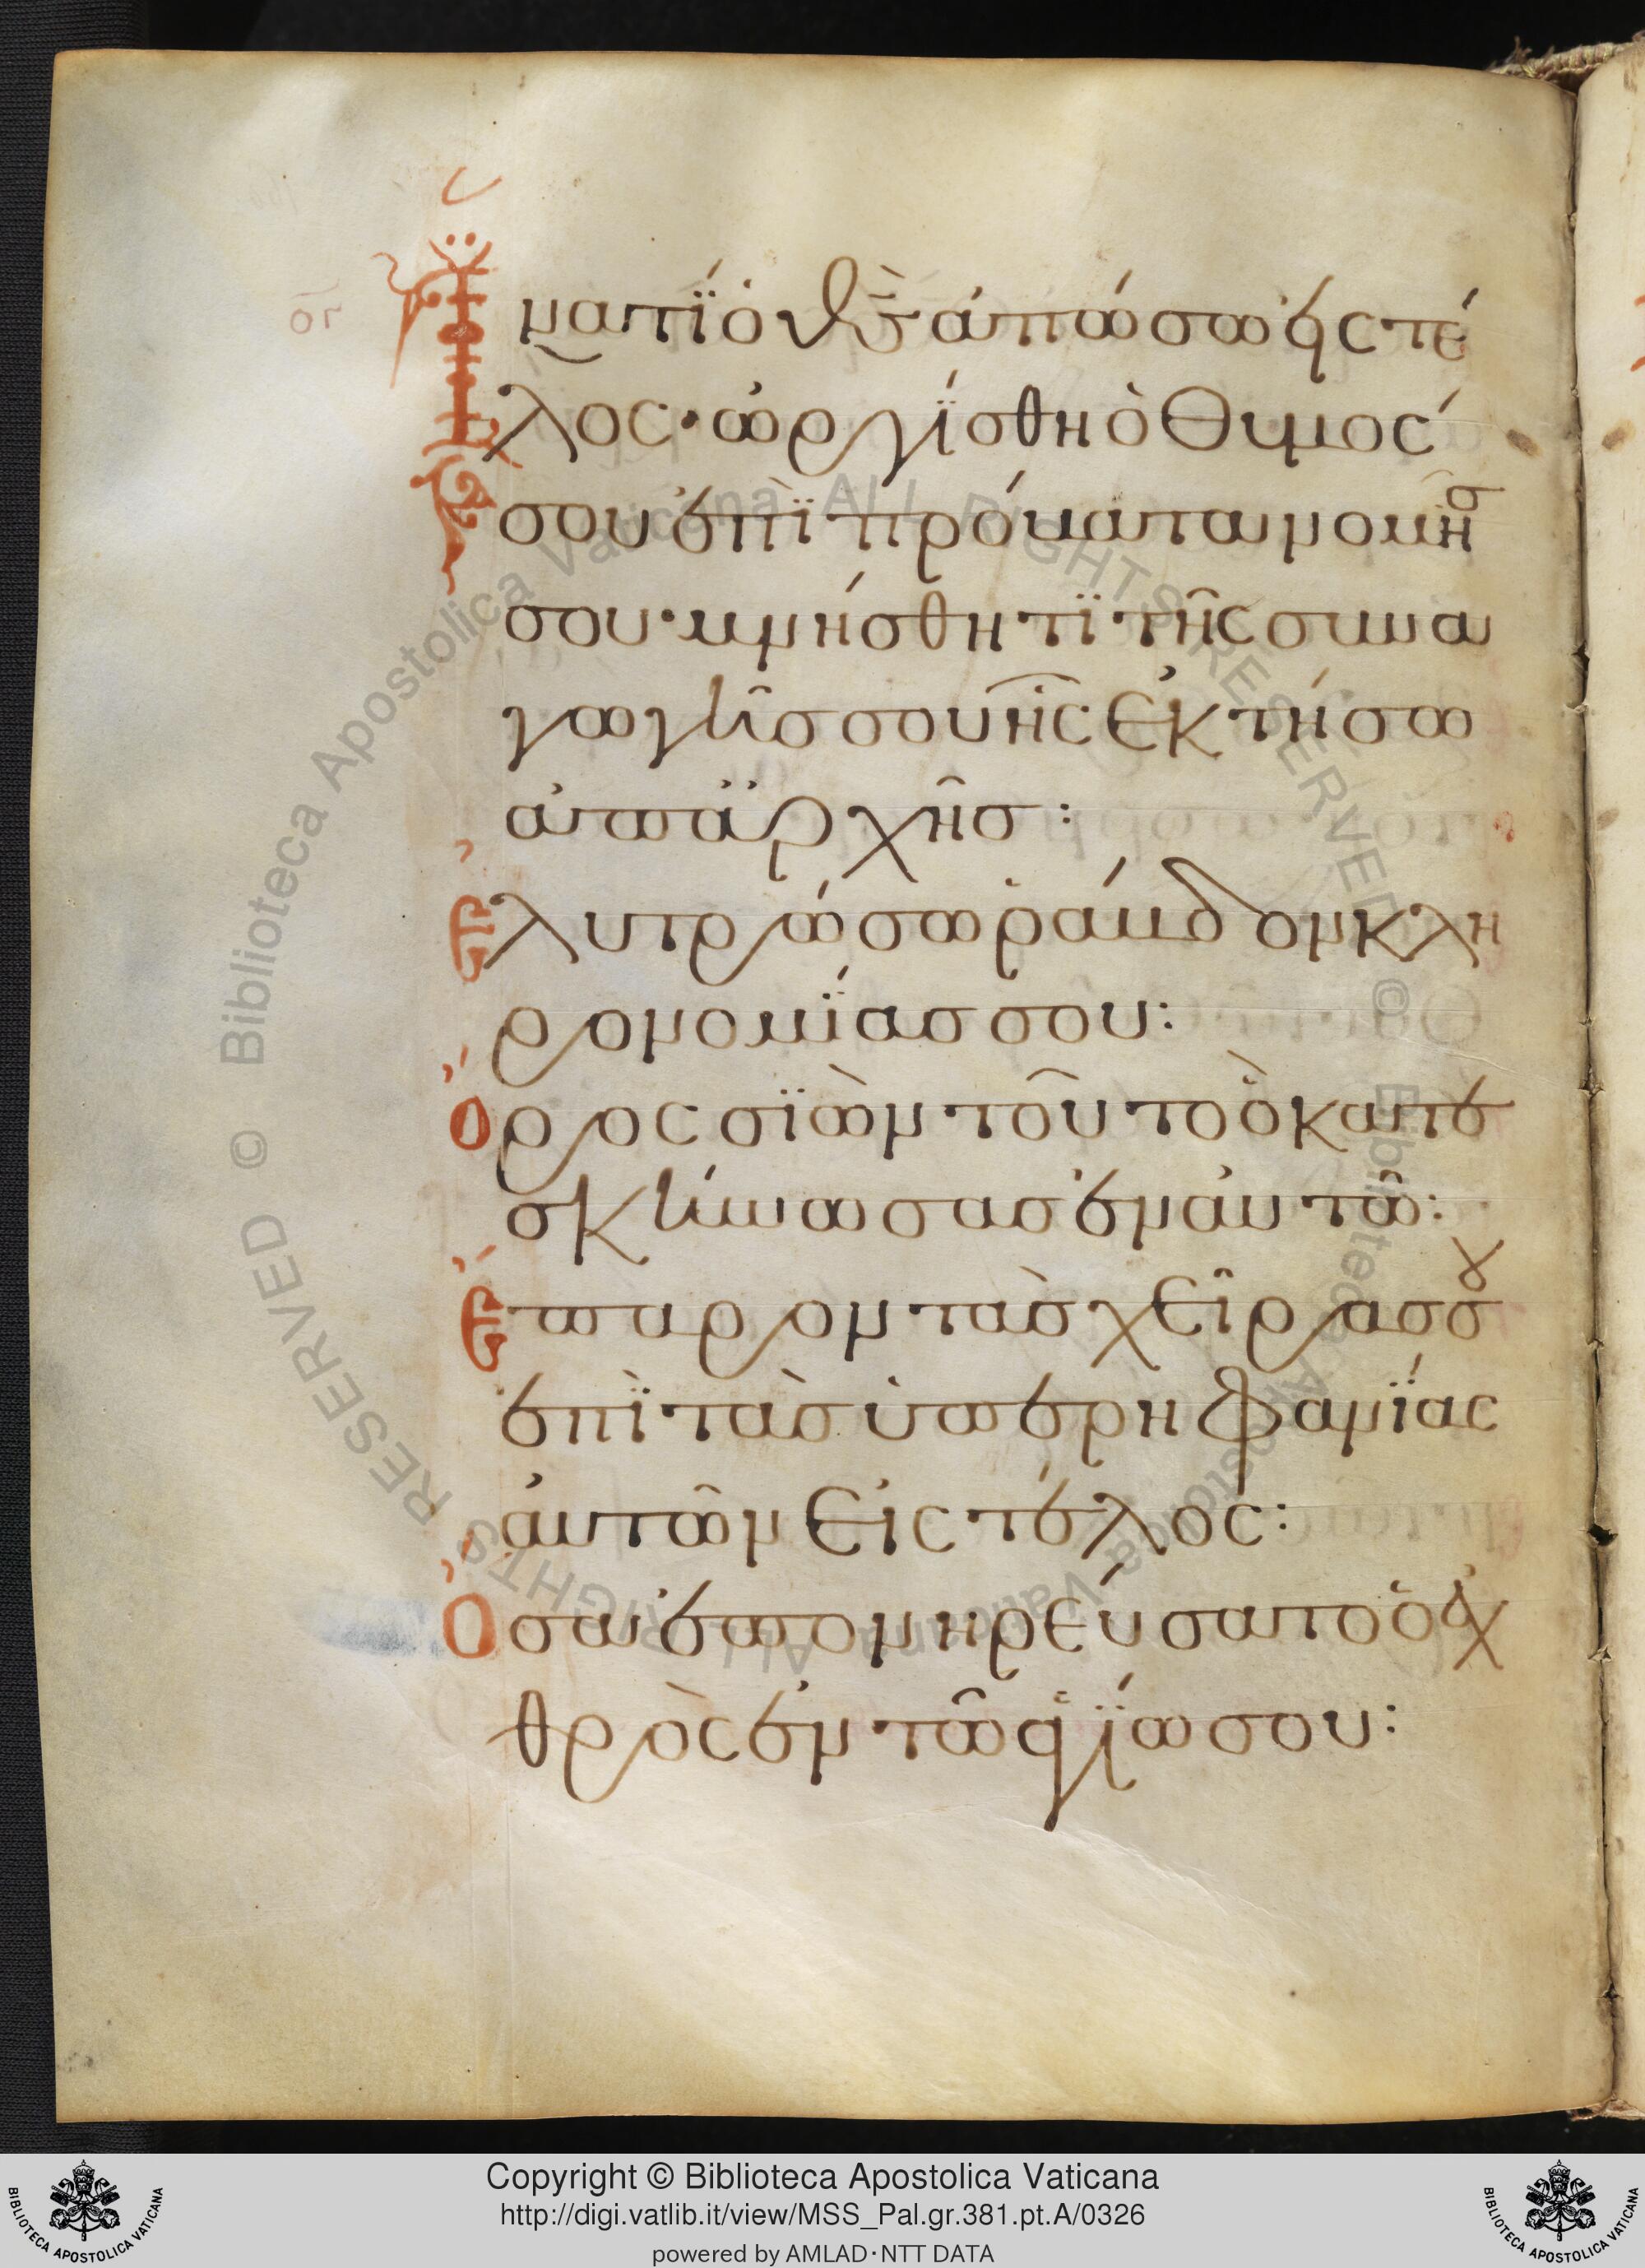 ογ
Ἵνα τί ὁ θς ἀπώσω εἰς τέ
λος· ὠργίσθη ὁ θυμός
σου ἐπὶ πρόβατα νομῆς
σου· μνήσθητι τῆς συνα
γωγῆς σου ἧς ἐκτήσω
ἀπἀρχῆς:
Ἐλυτρώσω ῥάβδον κλη
ρονομίας σου:
Ὄρος σιὼν τοῦτο ὃ κατε
σκήνωσας ἐν ἀυτῶ:
Ἔπαρον τὰς χεῖρας σου
ἐπὶ τὰς ὑπερηφανίας
ἀυτῶν εἰς τέλος:
Ὅσα ἐπονηρεύσατο ὁ ἐχ
θρὸς ἐν τῶ ἁγίω σου:
BIBLIOTECA APOSTOLICA VATICANA
Copyright © Biblioteca Apostolica Vaticana
http://digi.vatlib.it/view/MSS_Pal.gr.381.pt.A/0326
powered by AMLAD·NTT DATA
BIBLIOTECA APOSTOLICA VATICANA